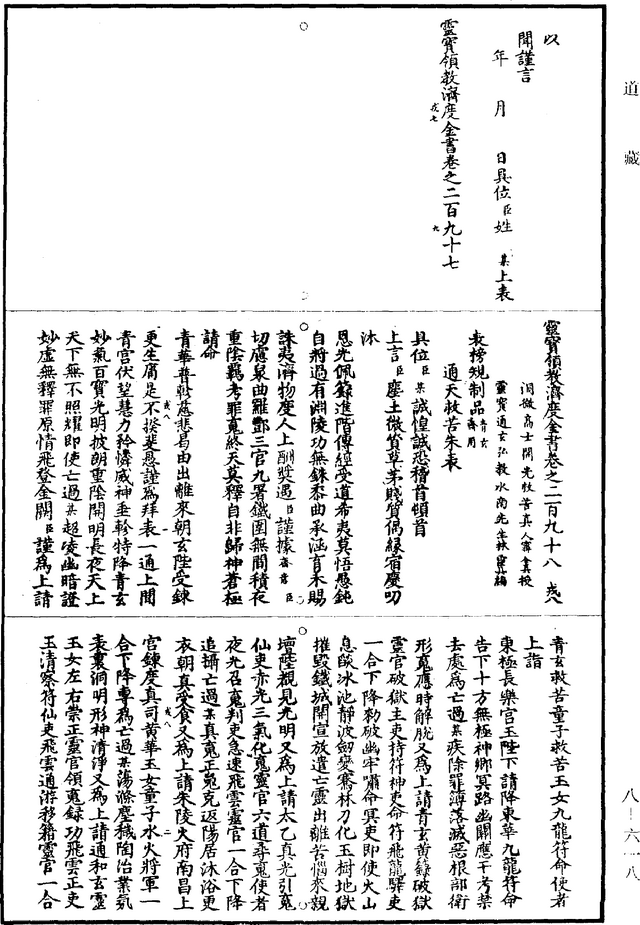 道藏
以
聞謹言
年　月　日具位臣姓　某上表
靈寶領教濟度金書卷之二百九十七
戎七　九
靈寶領教濟度金書卷之二百九十八　戎八
洞微高士開光救苦真人甯全真授
靈寶通玄弘教水南先生林靈真編
表榜規制品青玄齋用
通天救苦朱表
具位臣某誠惶誠恐稽首頓首
上言臣塵土微質草茅賤質偶緣宿慶叨
沐
恩光佩籙進階傳經受道希夷莫悟愚鈍
自將過有淵陵功無銖黍曲承涵育未賜
誅夷濟物度人上酬獎遇臣謹據齋意臣
切慮泉曲羅酆三官九署鐵圍無間積夜
重陰羈考罪䰟終天莫釋自非歸神蒼極
請命
青華普敷慈悲曷由出離來朝玄陛受鍊
更生臣是不揆斐恩謹為拜表一通上聞
青宮伏望慧力矜憐威神垂軫特降青玄
妙炁百寶光明披朗重陰開明長夜天上
天下無不照耀即使亡過某超淩幽暗證
妙虛無釋罪原情飛登金闕臣謹為上請
青玄救苦童子救苦玉女九龍符命使者
上詣
東極長樂宮玉陛下請降東華九龍符命
告下十方無極神鄉冥路幽關應干考禁
去處為亡過某疾除罪簿落滅惡根部衛
形䰟應時解脫又為上請青玄黃籙破獄
靈官破獄主吏持符神吏命符飛龍驛吏
一合下降勑破幽牢嘯命冥吏即使火山
息燄冰池靜波劒變騫林刀化玉樹地獄
摧毀鐵城開宣放遣亡靈出離苦惱來親
壇陛覩見光明又為上請太乙真光引䰟
仙吏赤光三氣化䰟靈官六道尋䰟使者
夜光召䰟判吏急速飛雲靈官一合下降
追攝亡過某真䰟正䰟克返陽居沐浴更
衣朝真受食又為上請朱陵火府南昌上
戎八　二
宮鍊度真司黃華玉女童子水火將軍一
合下降專為亡過某蕩滌塵穢陶冶業氛
表裏洞明形神清淨又為上請通和玄靈
玉女左右崇正靈官領䰟錄功飛雲正吏
玉清察符仙吏飛雲通游移籍靈官一合
八—六一八